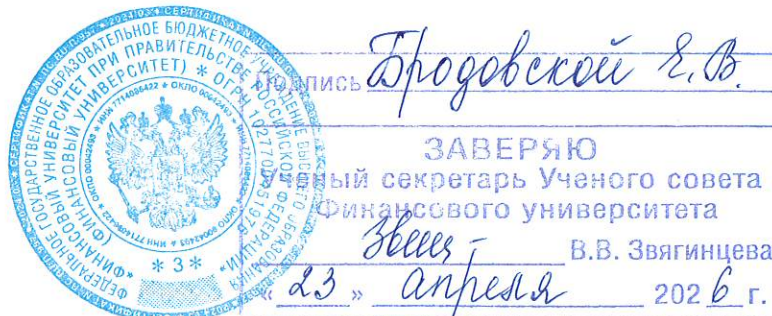 Подпись Бродовской Е.В.
ЗАВЕРЯЮ
Ученый секретарь Ученого совета
Финансового университета
В.В. Звягинцева
« 23 » апреля 2026 г.
ФЕДЕРАЛЬНОЕ ГОСУДАРСТВЕННОЕ ОБРАЗОВАТЕЛЬНОЕ БЮДЖЕТНОЕ УЧРЕЖДЕНИЕ ВЫСШЕГО ОБРАЗОВАНИЯ
«ФИНАНСОВЫЙ УНИВЕРСИТЕТ ПРИ ПРАВИТЕЛЬСТВЕ РОССИЙСКОЙ ФЕДЕРАЦИИ»
(ФИНАНСОВЫЙ УНИВЕРСИТЕТ) * ОГРН
* 3 *